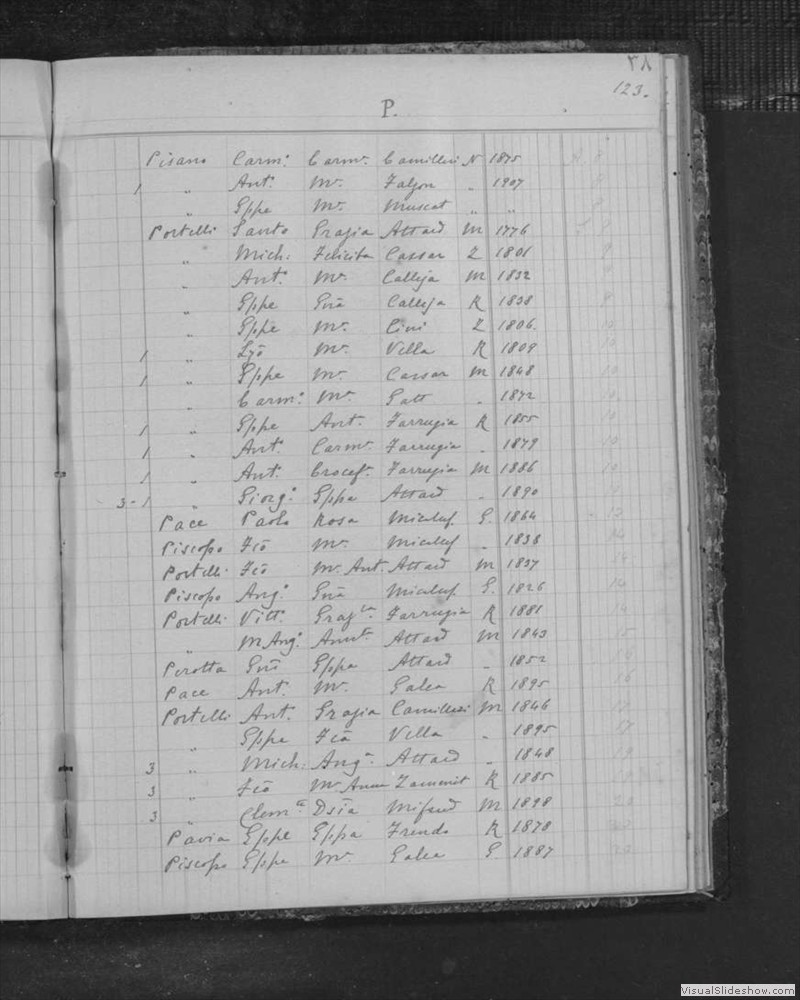 ٣٨
123.
P.
Pisano Carm.º Carm.ª Camilleri N 1875
1 " Ant.º M.ª Falzon " 1907
" Gppe M.ª Muscat " "
Portelli Santo Grazia Attard M 1776
" Mich: Felicita Cassar Z 1801
" Ant.º M.ª Calleja M 1832
" Gppe Gnã Calleja R 1838
" Gppe M.ª Cini Z 1806.
1 " M.ª Vella R 1809
1 " Gppe M.ª Cassar M 1848
" Carm.º M.ª Gatt " 1872
1 " Gppe Ant.ª Farrugia R 1855
1 " Ant.º Carm.ª Farrugia " 1879
1 " Ant.º Crocef.ª Farrugia M 1886
3-1 " Giorg.º Gppa Attard " 1890
Pace Paolo Rosa Micallef G. 1864
Piscopo Fcõ M.ª Micallef " 1838
Portelli Fcõ M.ª Ant. Attard M 1837
Piscopo Ang.º Gnã Micallef G. 1826
Portelli Vitt.º Graz.la Farrugia R 1881
" M Ang.º Annt.a Attard M 1843
Perotta Gnõ Gppa Attard " 1852
Pace Ant.º M.ª Galea R 1895
Portelli Ant.º Grazia Camilleri M 1846
" Gppe Fcã Vella " 1895
3 " Mich: Ang.ª Attard " 1848
3 " Fcõ M.ª Anna Zammit R 1885
3 " Clem.e Dsĩa Mifsud M 1898
Pavia Gppe Gppa Frendo R 1878
Piscopo Gppe M.ª Galea G. 1887
VisualSlideshow.com